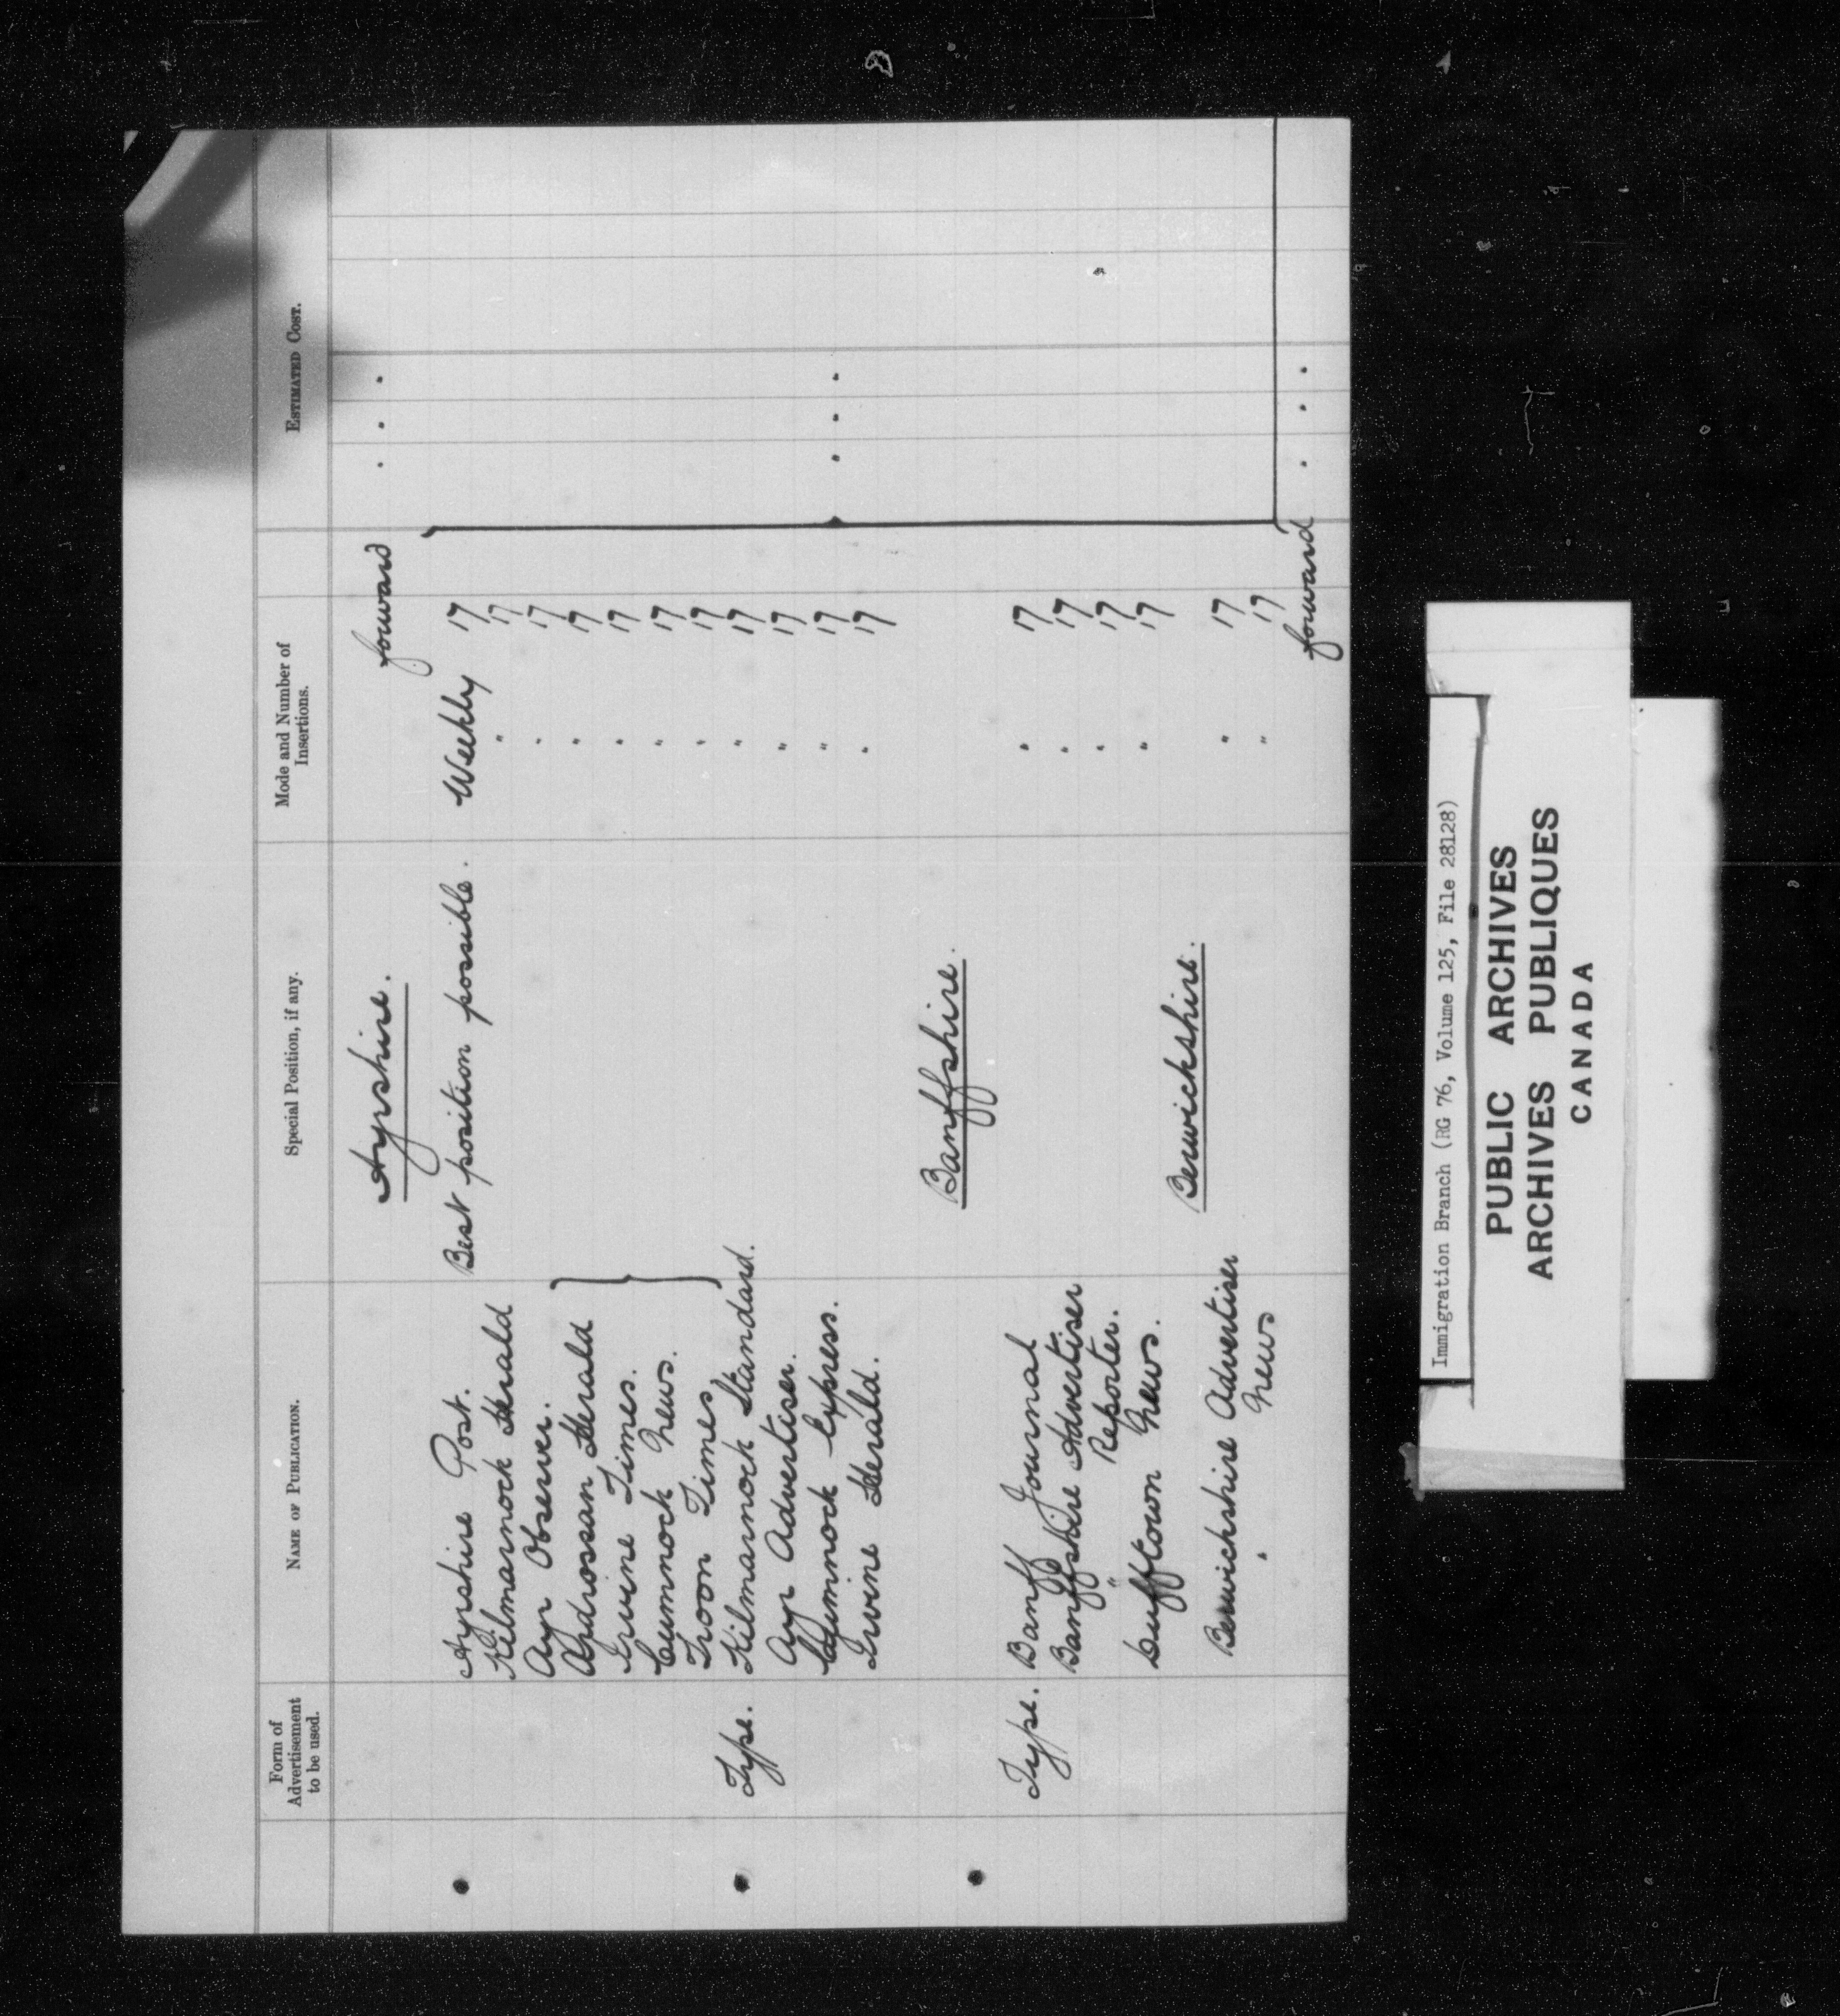 Form of Advertisement to be used.
NAME OF PUBLICATION.
Special Position, if any.
Mode and Number of Insertions.
ESTIMATED COST.
Ayrshire.
forward . . .
Ayrshire Post. Best position possible. Weekly 17
Kilmarnock Herald " 17
Ayr Observer. " 17
Ardrossan Herald " 17
Irvine Times. " 17
Cumnock News. " 17
Troon Times, " 17
Type. Kilmarnock Standard. " 17
Ayr Advertiser. " 17
Cumnock Express. " 17 . . .
Irvine Herald. " 17
Banffshire.
Type. Banff Journal " 17
Banffshire Advertiser " 17
" Reporter. " 17
Dufftown News. " 17
Berwickshire.
Berwickshire Advertiser " 17
" News " 17
forward . . .
Immigration Branch (RG 76, Volume 125, File 28128)
PUBLIC ARCHIVES
ARCHIVES PUBLIQUES
CANADA